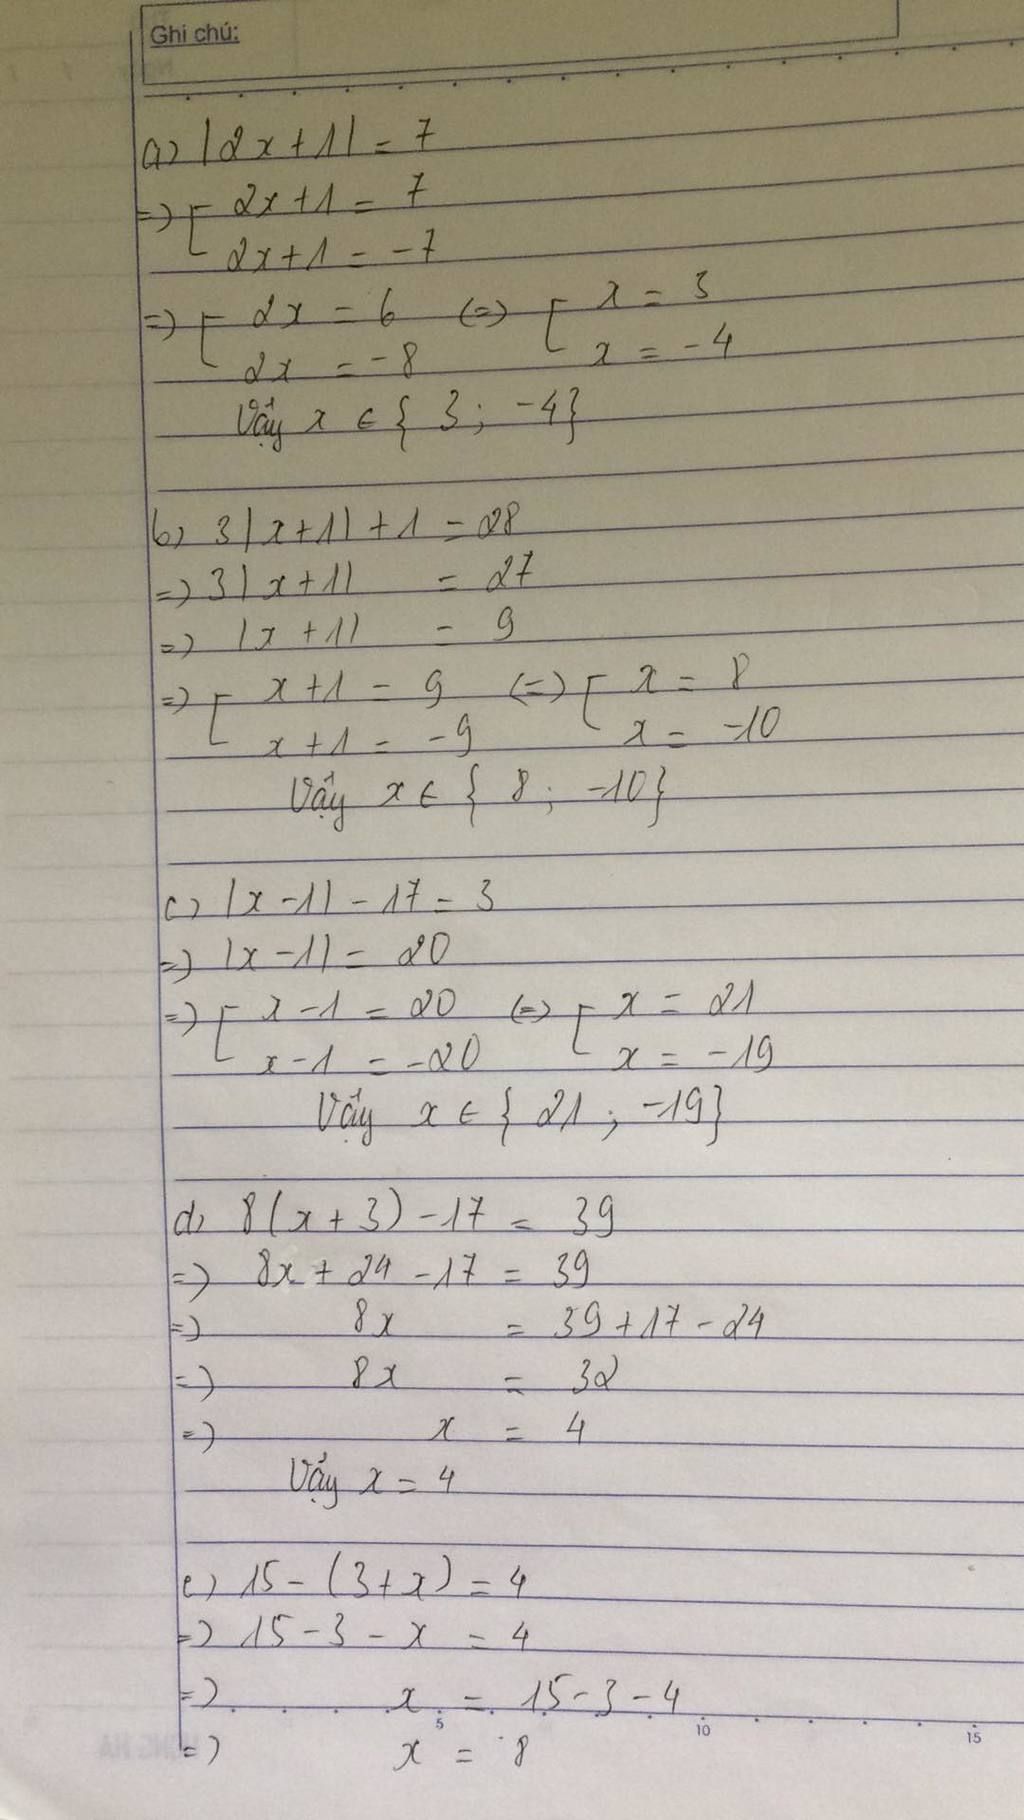 Ghi chú:
a) |2x+1| = 7
=> [ 2x+1 = 7
2x+1 = -7
=> [ 2x = 6 (=) [ x = 3
2x = -8 x = -4
Vậy x ∈ { 3 ; -4}
b) 3|x+1| + 1 = 28
=> 3|x+1| = 27
=> |x+1| = 9
=> [ x+1 = 9 (=) [ x = 8
x+1 = -9 x = -10
Vậy x ∈ { 8 ; -10}
c) |x-1| - 17 = 3
=> |x-1| = 20
=> [ x-1 = 20 (=) [ x = 21
x-1 = -20 x = -19
Vậy x ∈ { 21 ; -19}
d) 8(x+3) - 17 = 39
=> 8x + 24 - 17 = 39
=> 8x = 39 + 17 - 24
=> 8x = 32
=> x = 4
Vậy x = 4
e) 15 - (3+x) = 4
=> 15 - 3 - x = 4
=> x = 15 - 3 - 4
5 10 15
=> x = 8